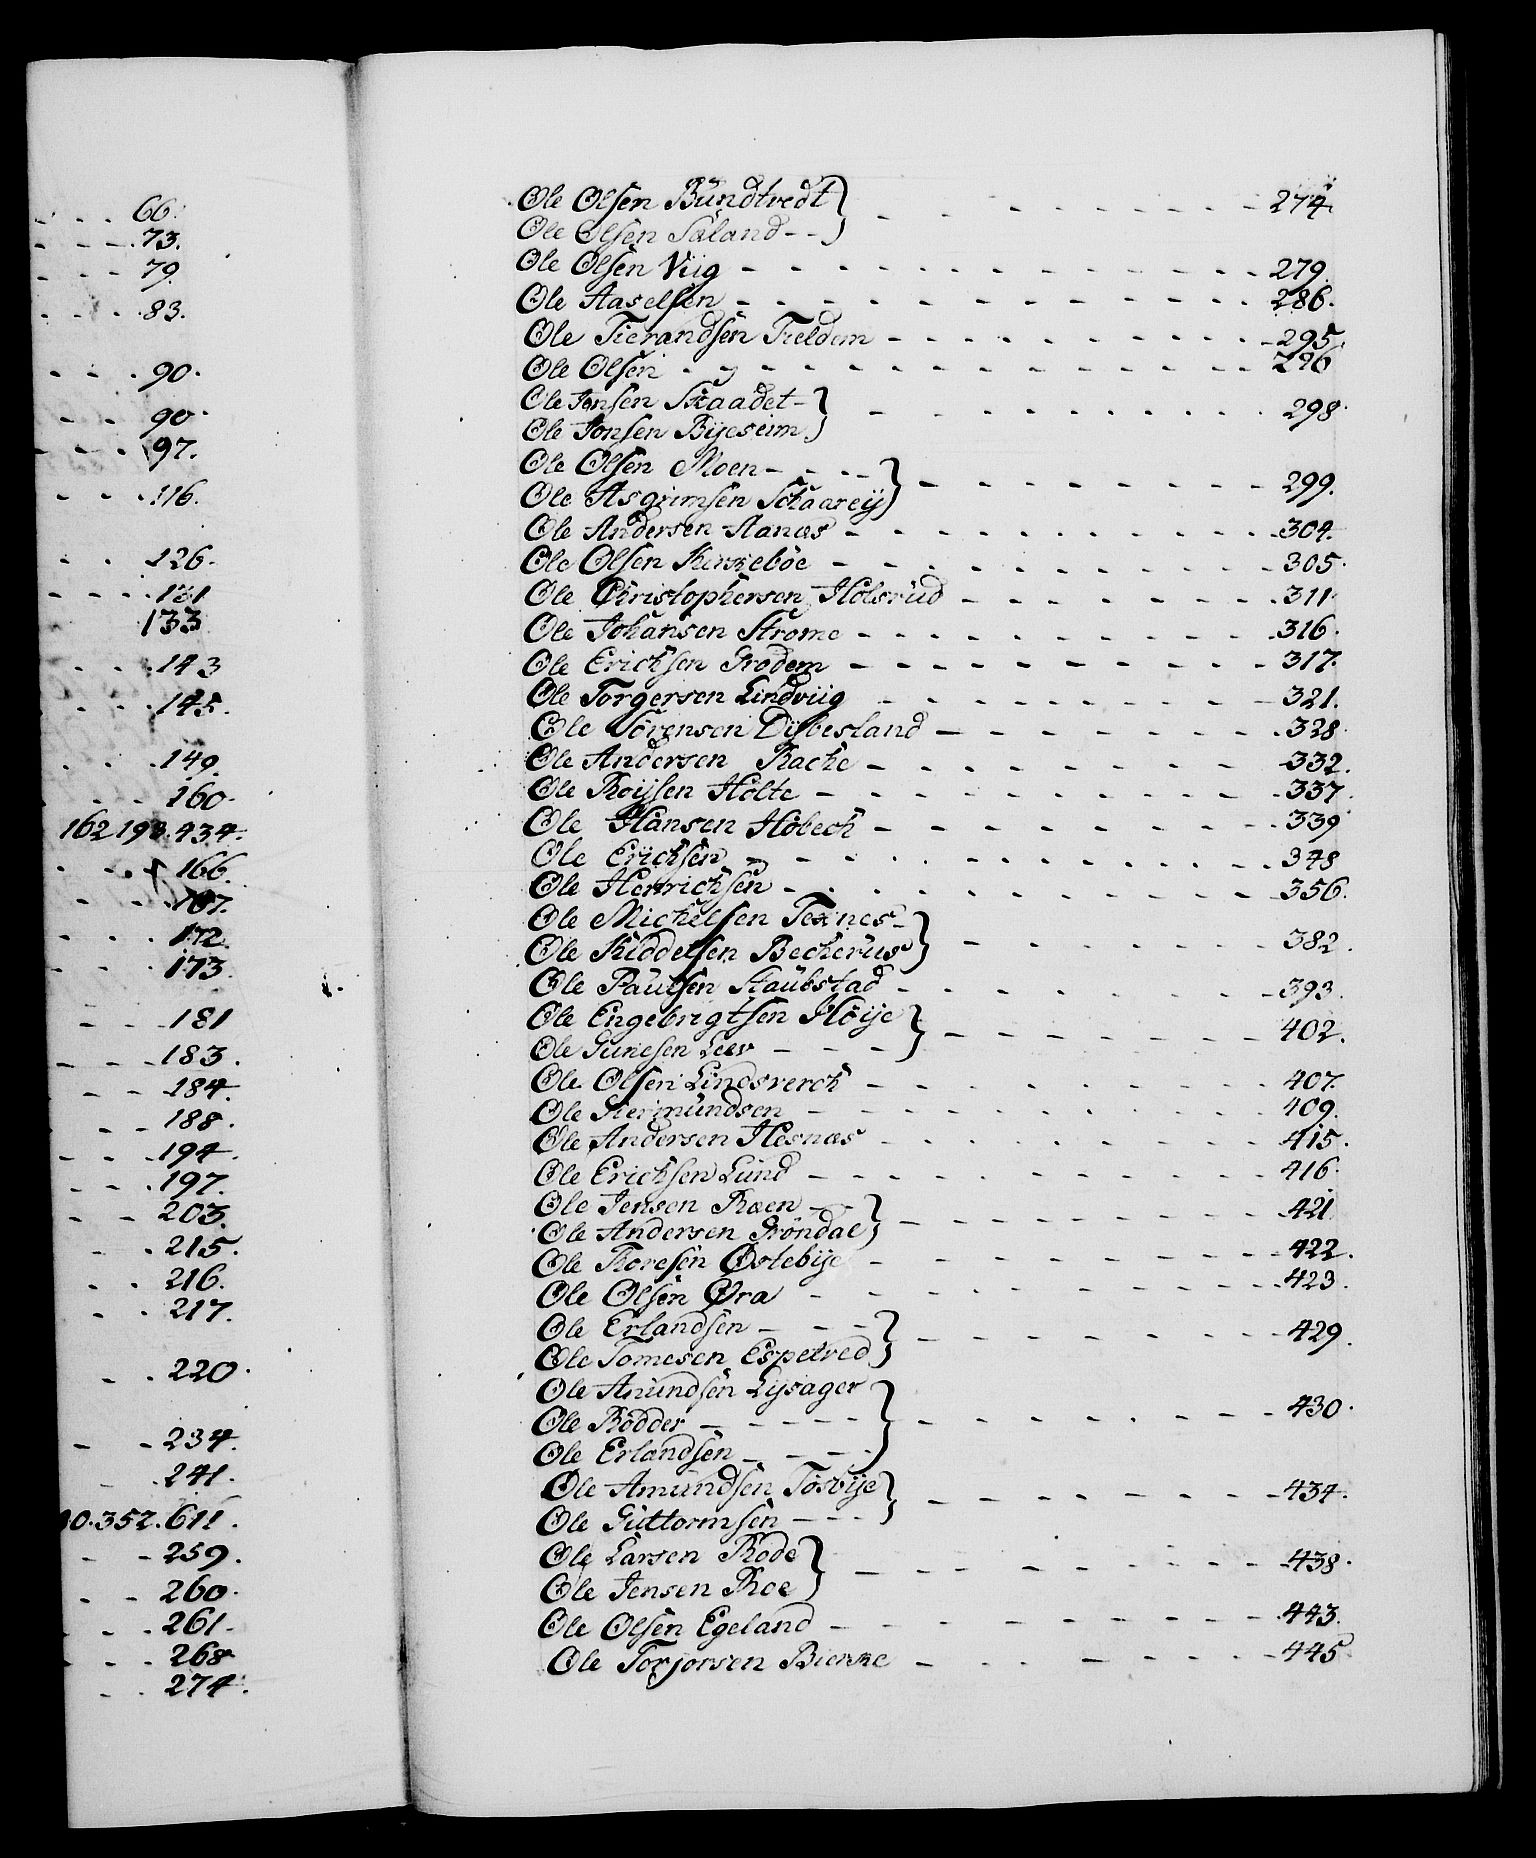 66.
73.
79.
83.
90.
90.
97.
116.
126.
131
133
143
145.
149.
160.
162.198.434.
166.
167.
172.
173.
181
183.
184.
188.
194.
197.
203.
215.
216.
217.
220.
234.
241.
352.611.
259.
260.
261.
268
274.
Ole Olsen Bündtvedt } - - - 274.
Ole Olsen Säland - -
Ole Olsen Viig - - - 279.
Ole Aaselsen - - - 286.
Ole Tierandsen Tveldem - - - 295.
Ole Olsen - - - 296
Ole Jonsen Skaadet - } - - - 298.
Ole Jonsen Bijesem
Ole Olsen Moen - - - } - - - 299.
Ole Asgrimsen Schaareij
Ole Andersen Aanæs - - - 304.
Ole Olsen Kirkebøe - - - 305.
Ole Christophersen Holsrüd - - - 311.
Ole Johansen Strøme - - - 316.
Ole Erichsen Grødem - - - 317.
Ole Torgersen Lindviig - - - 321.
Ole Sörensen Dijbesland - - - 328.
Ole Andersen Racke - - - 332.
Ole Roijsen Holte - - - 337.
Ole Hansen Höbech - - - 339
Ole Erichsen - - - 348
Ole Henrichsen - - - 356.
Ole Michelsen Texnes - } - - - 382.
Ole Kiddelsen Beckerüs
Ole Paulsen Staubstad - - - 393.
Ole Engebrigtsen Höije } - - - 402.
Ole Gunesen Leer - - -
Ole Olsen Lindsverck - - - 407.
Ole Giermündsen - - - 409.
Ole Andersen Hesnæs - - - 415.
Ole Erichsen Lund - - - 416.
Ole Jensen Ræen - - } - - - 421.
Ole Andersen Gröndal
Ole Toresen Østebije - - - 422.
Ole Olsen Øra - - - 423.
Ole Erlandsen - - - } - - - 429.
Ole Tomesen Espetved
Ole Anundsen Lijsager } - - - 430.
Ole Rödder - - -
Ole Erlandsen - - -
Ole Amundsen Tösbije } - - - 434.
Ole Guttormsen - - -
Ole Larsen Rode } - - - 438.
Ole Jensen Roe
Ole Olsen Egeland - - - 443.
Ole Torjorsen Bierke - - - 445